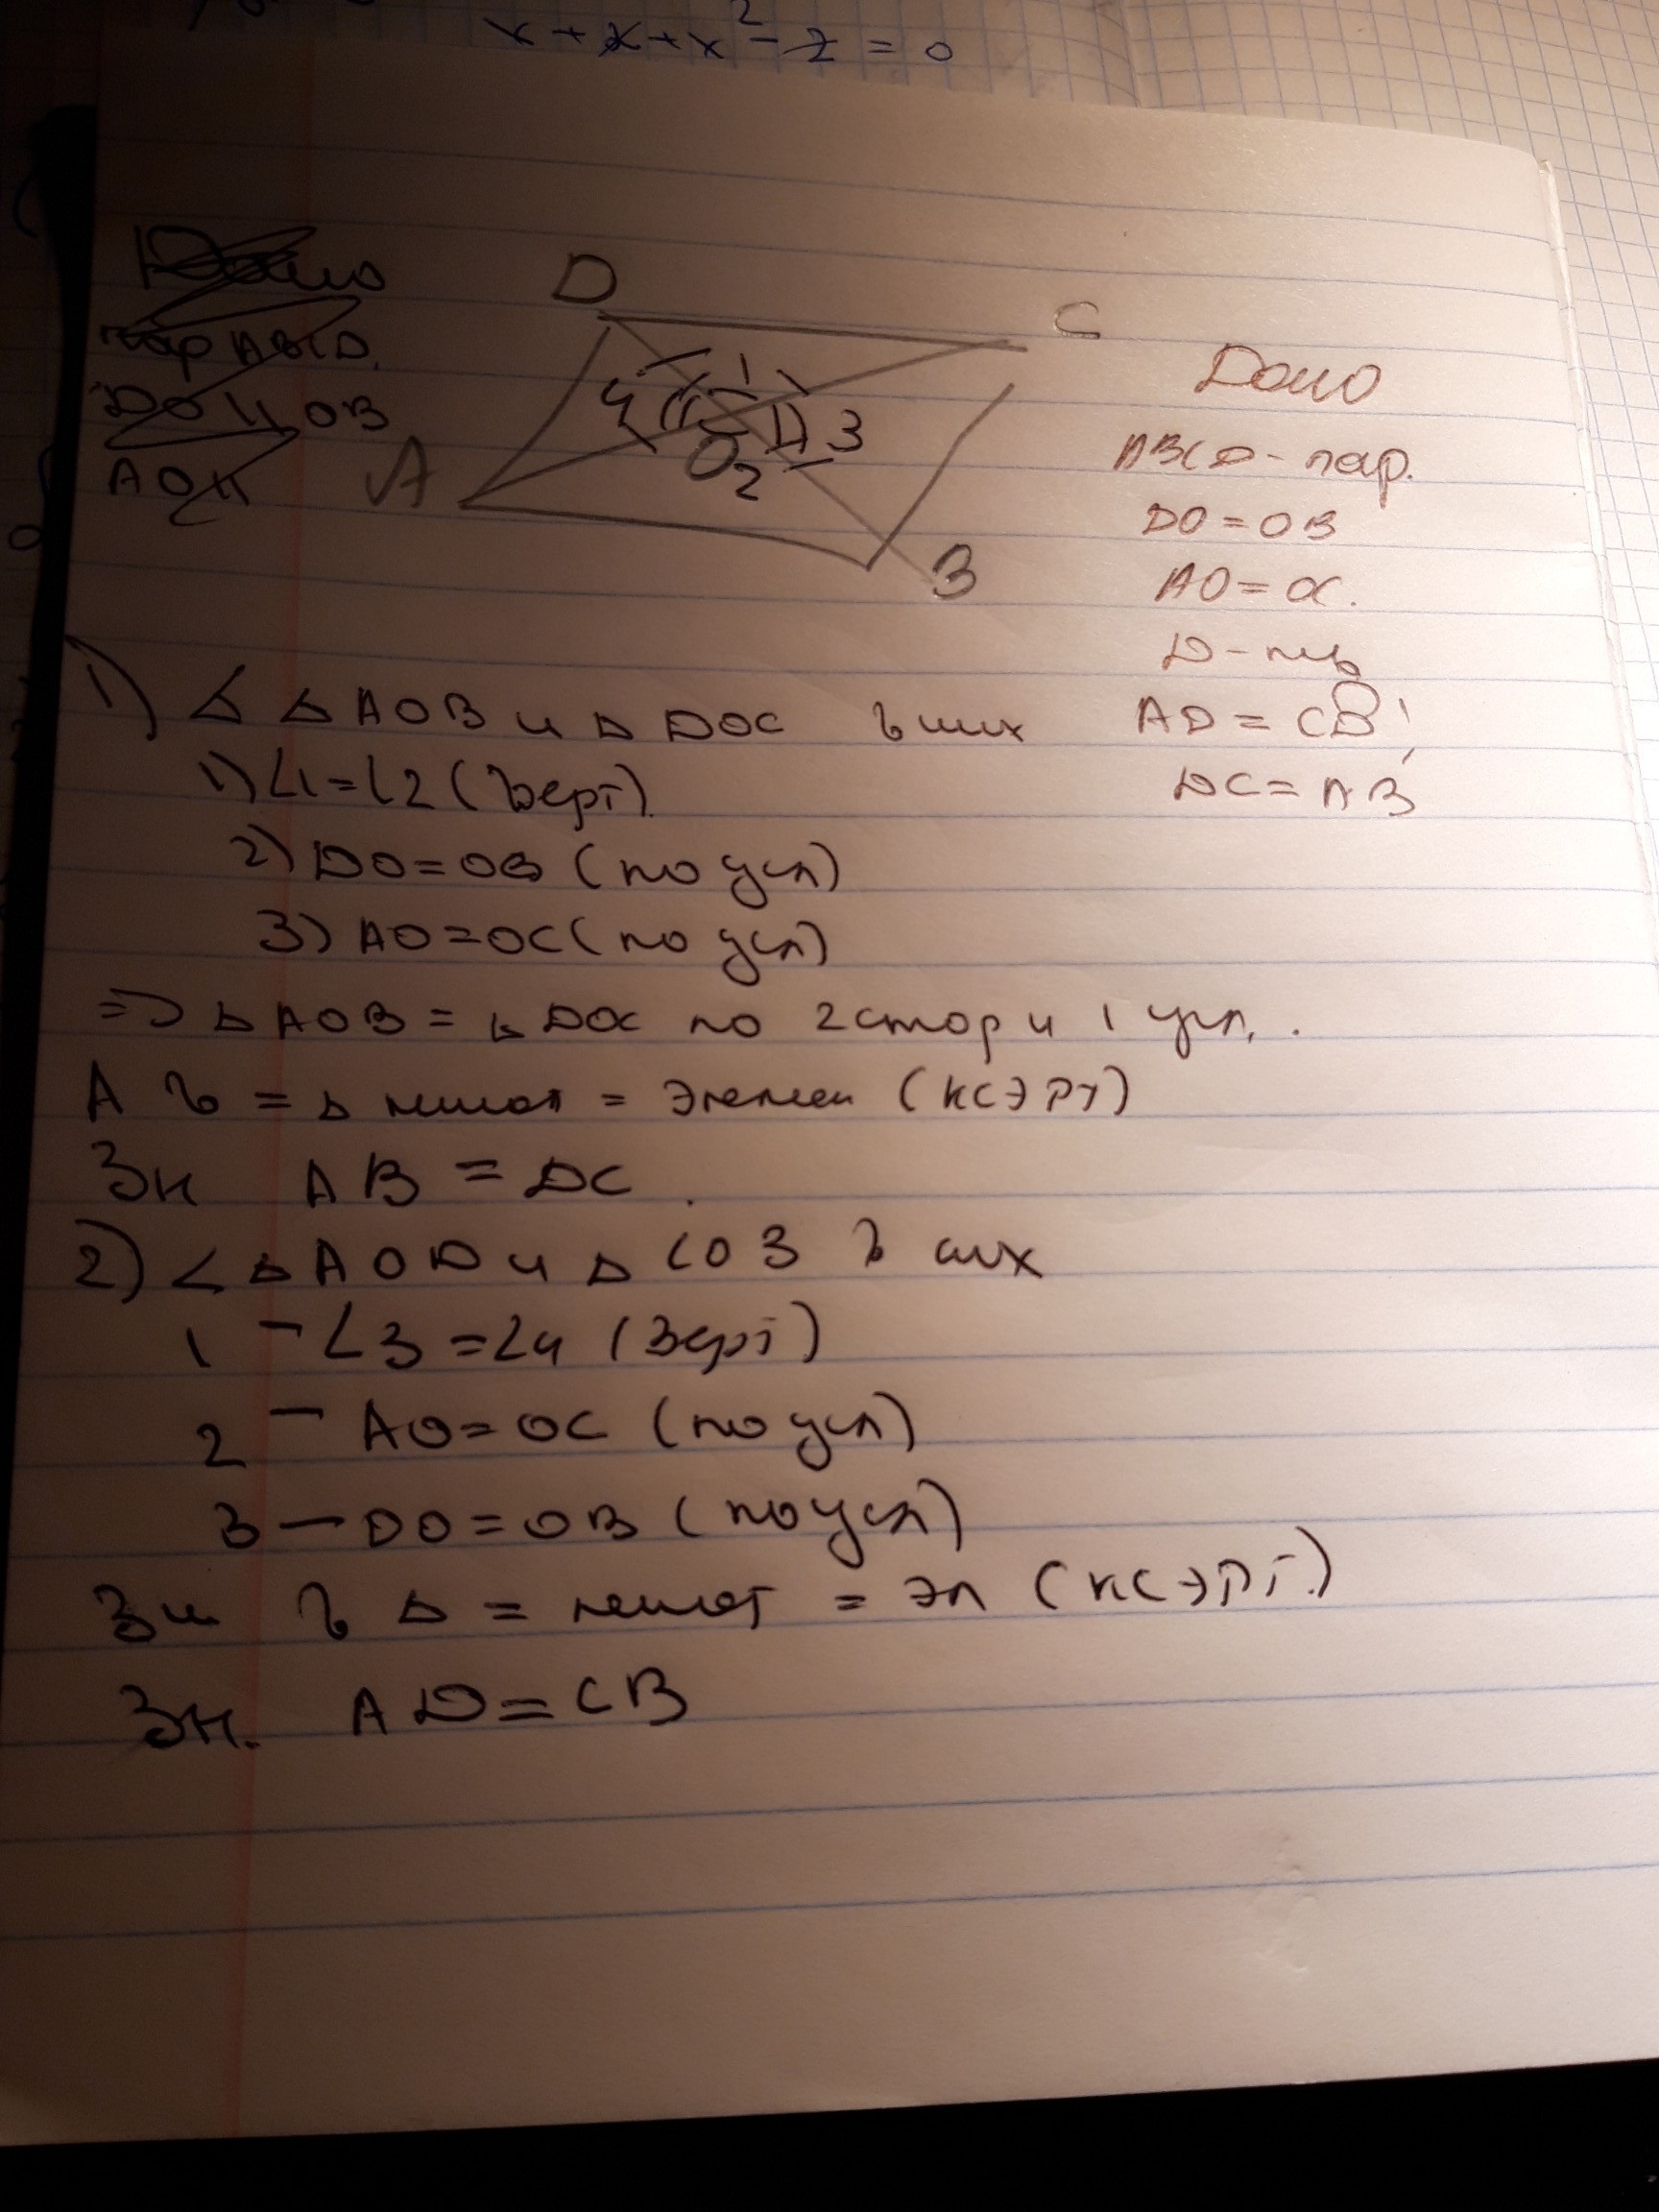 x + x + x² - 2 = 0
Дано
пар ABCD.
DO и OB
AO и
D
C
A
B
O
1
2
3
4
Дано
ABCD - пар.
DO = OB
AO = OC.
AD = CB,
DC = AB
1) < △ AOB и △ DOC в них
1) ∠1 = ∠2 (верт)
2) DO = OB (по усл)
3) AO = OC (по усл)
=> △ AOB = △ DOC по 2 стор и 1 угл.
А в = △ лежат = элемен (КСЭРТ)
Зн AB = DC.
2) < △ AOD и △ COB в них
1 - ∠3 = ∠4 (верт)
2 - AO = OC (по усл)
3 - DO = OB (по усл)
Зн в △ = лежат = эл (КСЭРТ.)
Зн. AD = CB